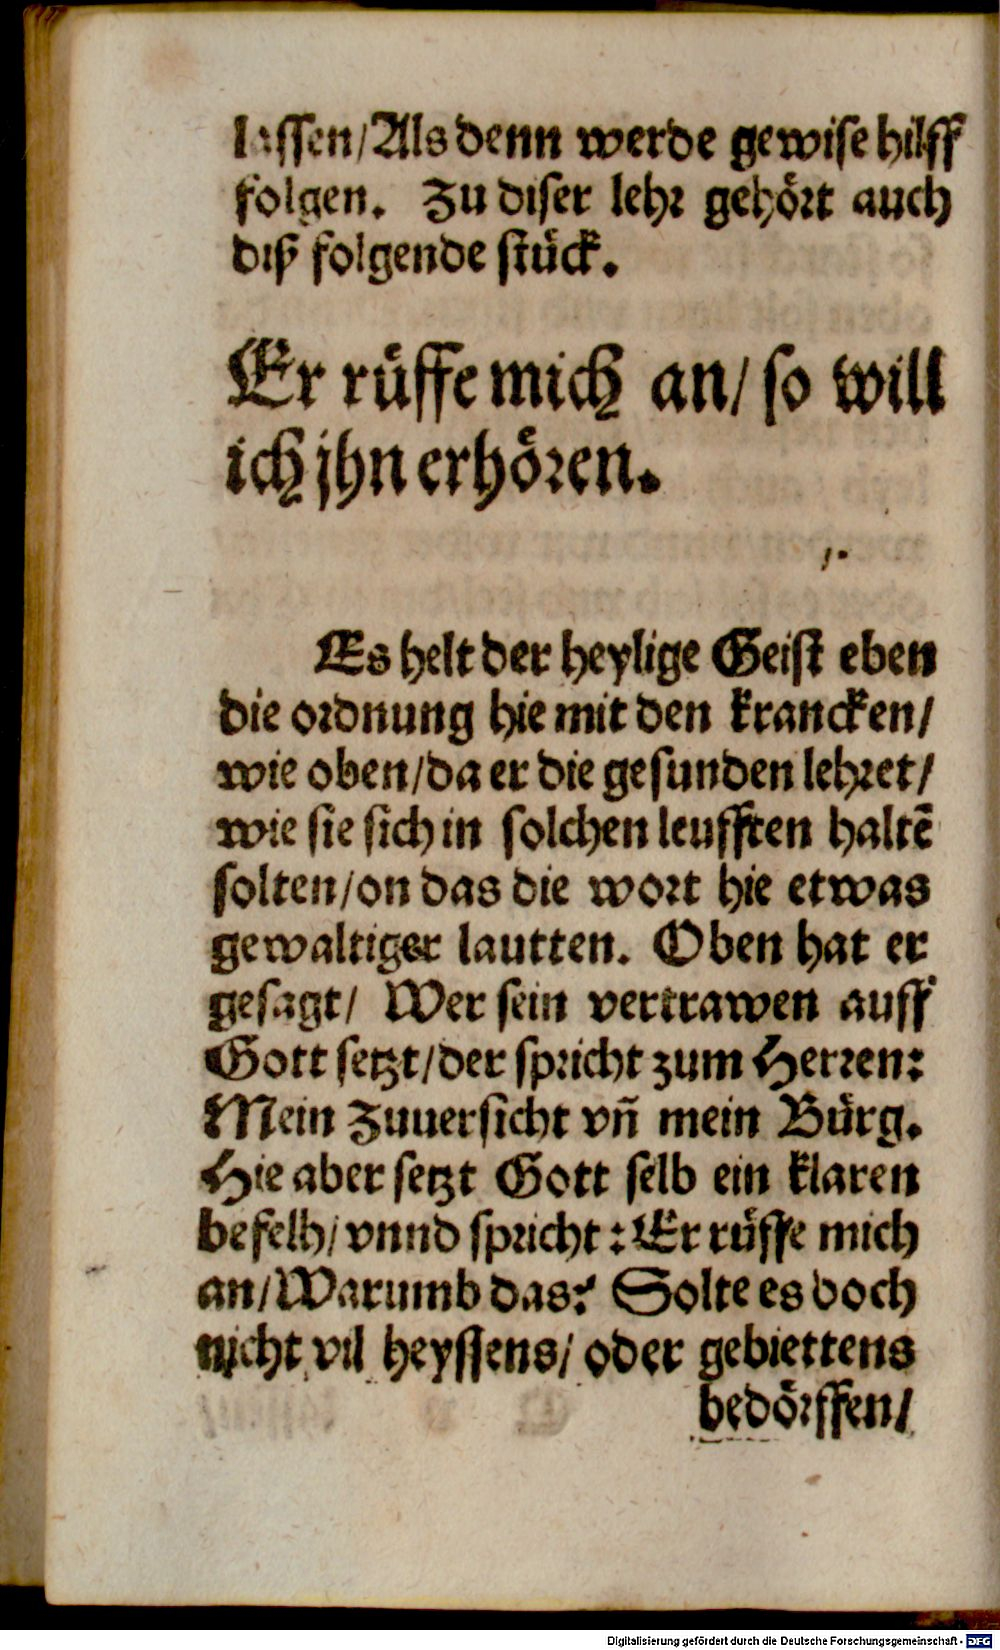 lassen/Als denn werde gewise hilff
folgen. Zu diser lehr gehört auch
diß folgende stück.
Er rüffe mich an/ so will
ich jhn erhören.
Es helt der heylige Geist eben
die ordnung hie mit den krancken/
wie oben/da er die gesunden lehret/
wie sie sich in solchen leufften haltē
solten/on das die wort hie etwas
gewaltiger lautten. Oben hat er
gesagt/ Wer sein vertrawen auff
Gott setzt/der spricht zum Herren:
Mein Zuuersicht vñ mein Bürg.
Hie aber setzt Gott selb ein klaren
befelh/vnnd spricht: Er rüffe mich
an/Warumb das? Solte es doch
nicht vil heyssens/ oder gebiettens
bedörffen/
Digitalisierung gefördert durch die Deutsche Forschungsgemeinschaft - DFG